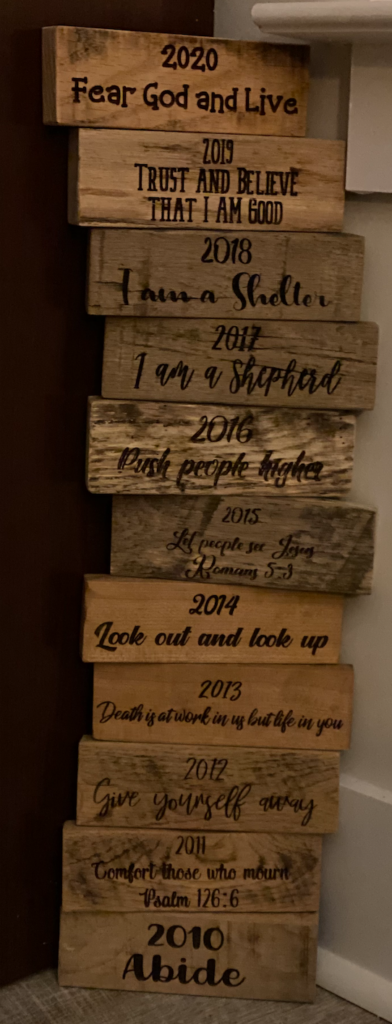 2020
Fear God and Live
2019
TRUST AND BELIEVE
THAT I AM GOOD
2018
I am a Shelter
2017
I am a Shepherd
2016
Push people higher
2015
Let people see Jesus
Romans 5:3
2014
Look out and look up
2013
Death is at work in us but life in you
2012
Give yourself away
2011
Comfort those who mourn
Psalm 126:6
2010
Abide